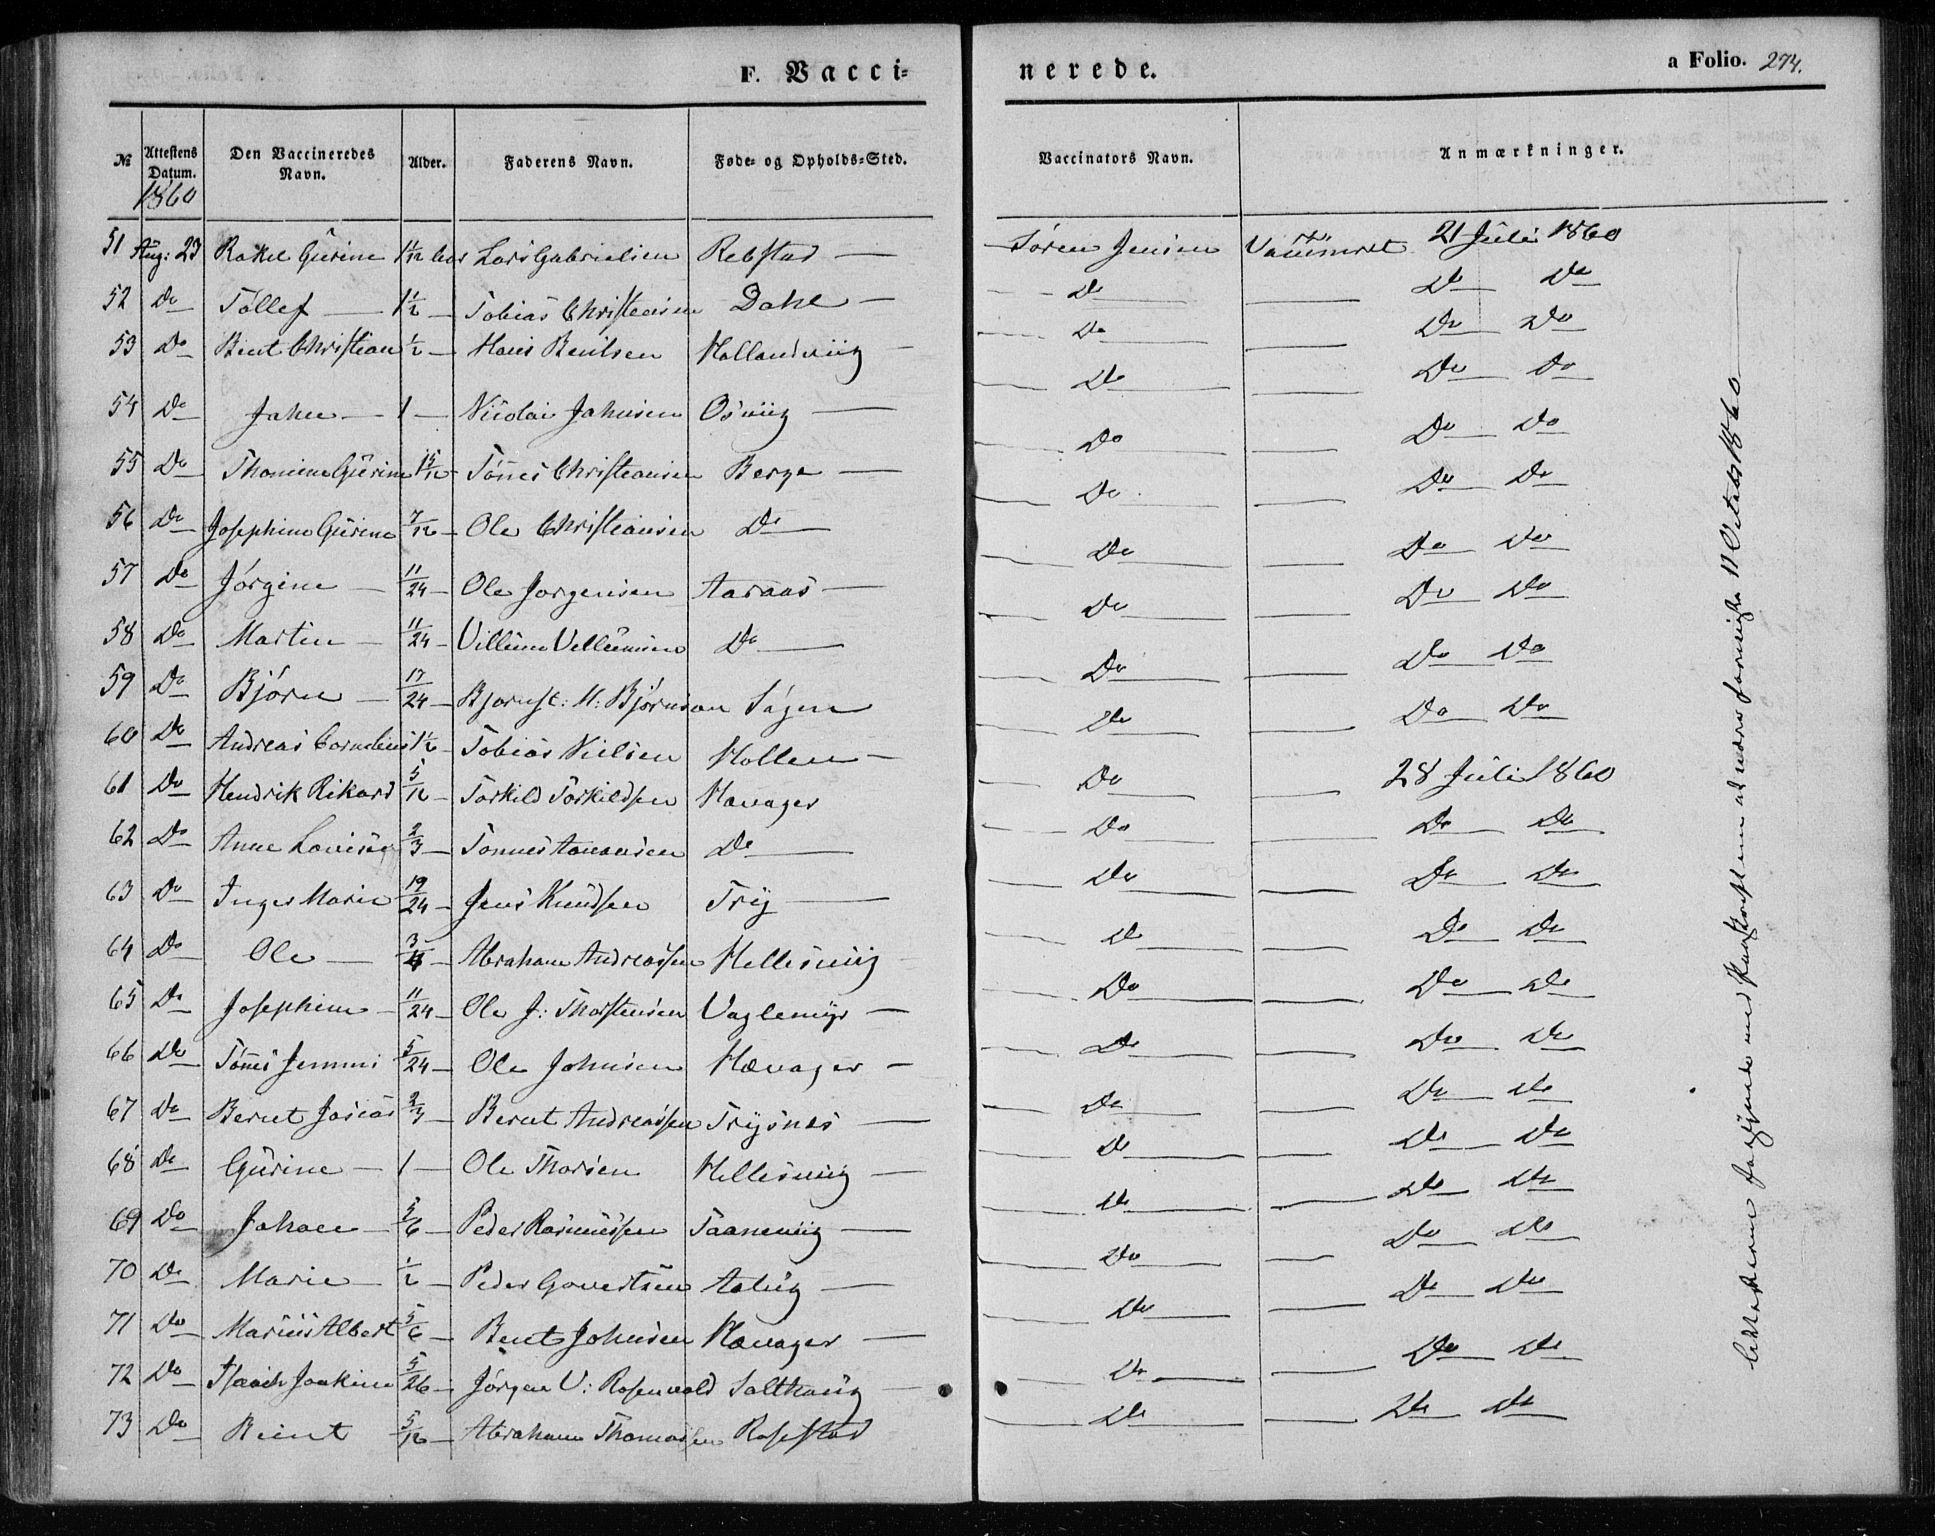 F. Vacci=
nerede.
a Folio. 274.
№ Attestens Datum. Den Vaccineredes Navn. Alder. Faderens Navn. Føde- og Opholds-Sted. Vaccinators Navn. Anmærkninger.
1860
51 Aug: 23 Rakel Gurine 1 1/12 Lars Gabrielsen Rebstad — Søren Jensen Vaccineret 21 Juli 1860
52 Do Tollef — 1 1/2 — Tobias Christensen Dahl — Do — Do Do
53 Do Bent Christian 1/2 — Hans Bentsen Hallandviig — Do — Do Do
54 Do Jahn — 1 — Nicolai Jahnsen Osviig — Do — Do Do
55 Do Thomine Gurine 1 5/12 — Tønnes Christiansen Berge — Do — Do Do
56 Do Josephine Gurine 7/12 — Ole Christiansen Do — Do — Do Do
57 Do Jörgine — 11/24 — Ole Jørgensen Aaraas — Do — Do Do
58 Do Martin — 11/24 — Villum Villumsen Do — Do — Do Do
59 Do Bjørn — 17/24 — Bjørnst: M: Bjørnson Søgne Do — Do Do
60 Do Andreas Cornelius 1 1/2 — Tobias Nielsen Hollen — Do — Do Do
61 Do Hendrik Rikard 5/12 — Torkild Torkildsen Havager Do — 28 Juli 1860
62 Do Anne Lovise 2/3 — Tønnes Do — Do — Do Do
63 Do Inger Marie 19/24 — Jens Knudsen Trÿ — Do — Do Do
64 Do Ole — 3/4 — Abraham Andreassen Hellesviig — Do — Do Do
65 Do Josephine — 11/24 — Ole J: Thorstensen Vaglemyr — Do — Do Do
66 Do Tønnes 5/24 — Ole Johnsen Havager — Do — Do Do
67 Do Bernt Josias 2/3 — Bernt Andreassen Trysnes — Do — Do Do
68 Do Gurine — 1 — Ole Thorsen Hellesviig — Do — Do Do
69 Do Johan — 5/6 — Peder Rasmussen Taaneviig — Do — Do Do
70 Do Marie — 1/2 — Peder Govertsen — Do — Do Do
71 Do Marius Albert 5/6 — Bent Johnsen Havager — Do — Do Do
72 Do Joakim 5/26 — Jørgen V: Rosenvold — Do — Do Do
73 Do Beint 5/12 — Abraham Thomassen Rosstad Do — Do Do
11 October 1860